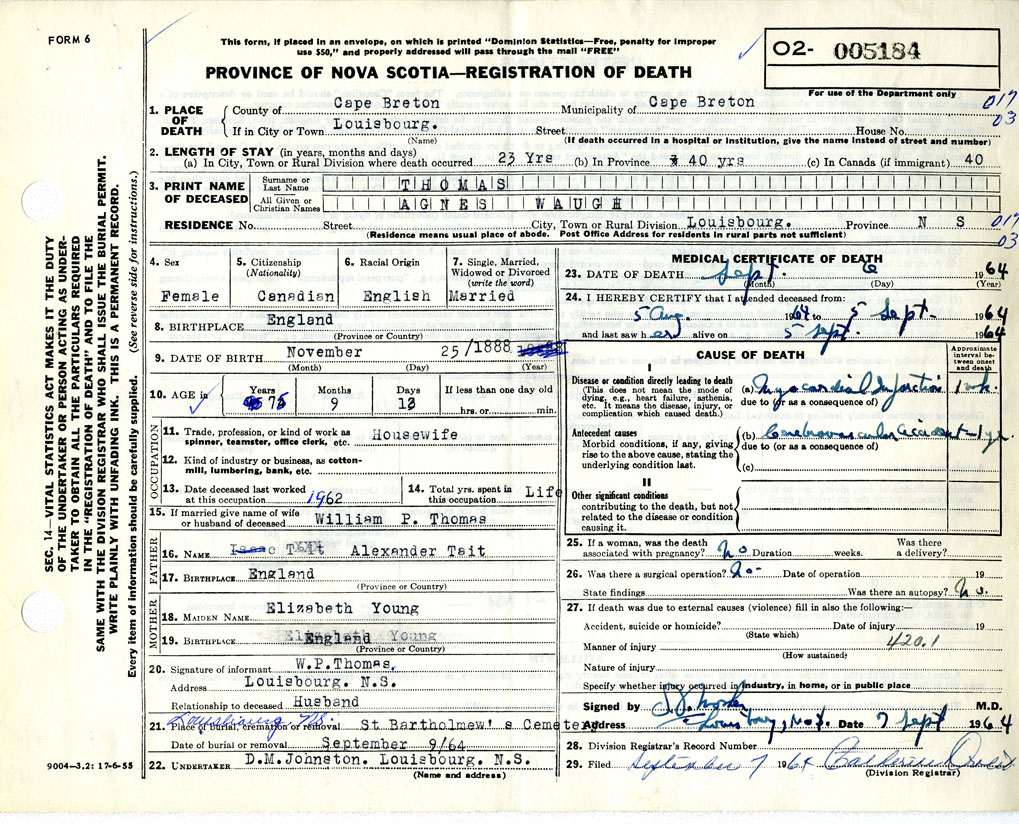 FORM 6
This form, if placed in an envelope, on which is printed "Dominion Statistics—Free, penalty for improper
use $50," and properly addressed will pass through the mail "FREE"
PROVINCE OF NOVA SCOTIA—REGISTRATION OF DEATH
O2- 005184
For use of the Department only
017
03
1. PLACE OF DEATH
County of Cape Breton Municipality of Cape Breton
If in City or Town Louisbourg. Street House No.
(Name) (If death occurred in a hospital or institution, give the name instead of street and number)
2. LENGTH OF STAY (in years, months and days)
(a) In City, Town or Rural Division where death occurred 23 Yrs (b) In Province 40 yrs (c) In Canada (if immigrant) 40
3. PRINT NAME OF DECEASED
Surname or Last Name THOMAS
All Given or Christian Names AGNES WAUGH
RESIDENCE No. Street City, Town or Rural Division Louisbourg. Province N S
017
03
(Residence means usual place of abode. Post Office Address for residents in rural parts not sufficient)
4. Sex
Female
5. Citizenship
(Nationality)
Canadian
6. Racial Origin
English
7. Single, Married, Widowed or Divorced
(write the word)
Married
8. BIRTHPLACE England
(Province or Country)
9. DATE OF BIRTH November 25/1888
(Month) (Day) (Year)
10. AGE in
Years 75
Months 9
Days 13
If less than one day old
hrs. or min.
OCCUPATION
11. Trade, profession, or kind of work as
spinner, teamster, office clerk, etc. Housewife
12. Kind of industry or business, as cotton-
mill, lumbering, bank, etc.
13. Date deceased last worked
at this occupation 1962
14. Total yrs. spent in
this occupation Life
15. If married give name of wife
or husband of deceased William P. Thomas
FATHER
16. NAME Isaac Tait Alexander Tait
17. BIRTHPLACE England
(Province or Country)
MOTHER
18. MAIDEN NAME Elizabeth Young
19. BIRTHPLACE England
(Province or Country)
20. Signature of informant W.P.Thomas.
Address Louisbourg. N.S.
Relationship to deceased Husband
Louisbourg NS.
21. Place of burial, cremation or removal St Bartholmew's Cemetery
Date of burial or removal September 9/64
22. UNDERTAKER D.M.Johnston. Louisbourg. N.S.
(Name and address)
MEDICAL CERTIFICATE OF DEATH
23. DATE OF DEATH Sept. 6 1964
(Month) (Day) (Year)
24. I HEREBY CERTIFY that I attended deceased from:
5 Aug. 1964 to 5 Sept. 1964
and last saw her alive on 5 Sept. 1964
CAUSE OF DEATH
Approximate interval between onset and death
I
Disease or condition directly leading to death
(This does not mean the mode of
dying, e.g., heart failure, asthenia,
etc. It means the disease, injury, or
complication which caused death.)
(a) Myocardial Infarction 1 wk.
due to (or as a consequence of)
Antecedent causes
Morbid conditions, if any, giving
rise to the above cause, stating the
underlying condition last.
(b) Cerebrovascular Accident — 1 yr.
due to (or as a consequence of)
(c)
II
Other significant conditions
contributing to the death, but not
related to the disease or condition
causing it.
25. If a woman, was the death
associated with pregnancy? No Duration weeks. Was there a delivery?
26. Was there a surgical operation? No- Date of operation 19
State findings Was there an autopsy? No.
27. If death was due to external causes (violence) fill in also the following:—
Accident, suicide or homicide? Date of injury 19
(State which)
Manner of injury 420.1
(How sustained)
Nature of injury
Specify whether injury occurred in industry, in home, or in public place
Signed by M.D.
Address Date 7 Sept 1964
28. Division Registrar's Record Number
29. Filed September 7 1964 Catherine
(Division Registrar)
SEC. 14—VITAL STATISTICS ACT MAKES IT THE DUTY
OF THE UNDERTAKER OR PERSON ACTING AS UNDER-
TAKER TO OBTAIN ALL THE PARTICULARS REQUIRED
IN THE "REGISTRATION OF DEATH" AND TO FILE THE
SAME WITH THE DIVISION REGISTRAR WHO SHALL ISSUE THE BURIAL PERMIT.
WRITE PLAINLY WITH UNFADING INK. THIS IS A PERMANENT RECORD.
Every item of information should be carefully supplied. (See reverse side for instructions.)
9004—3.2: 17-6-55